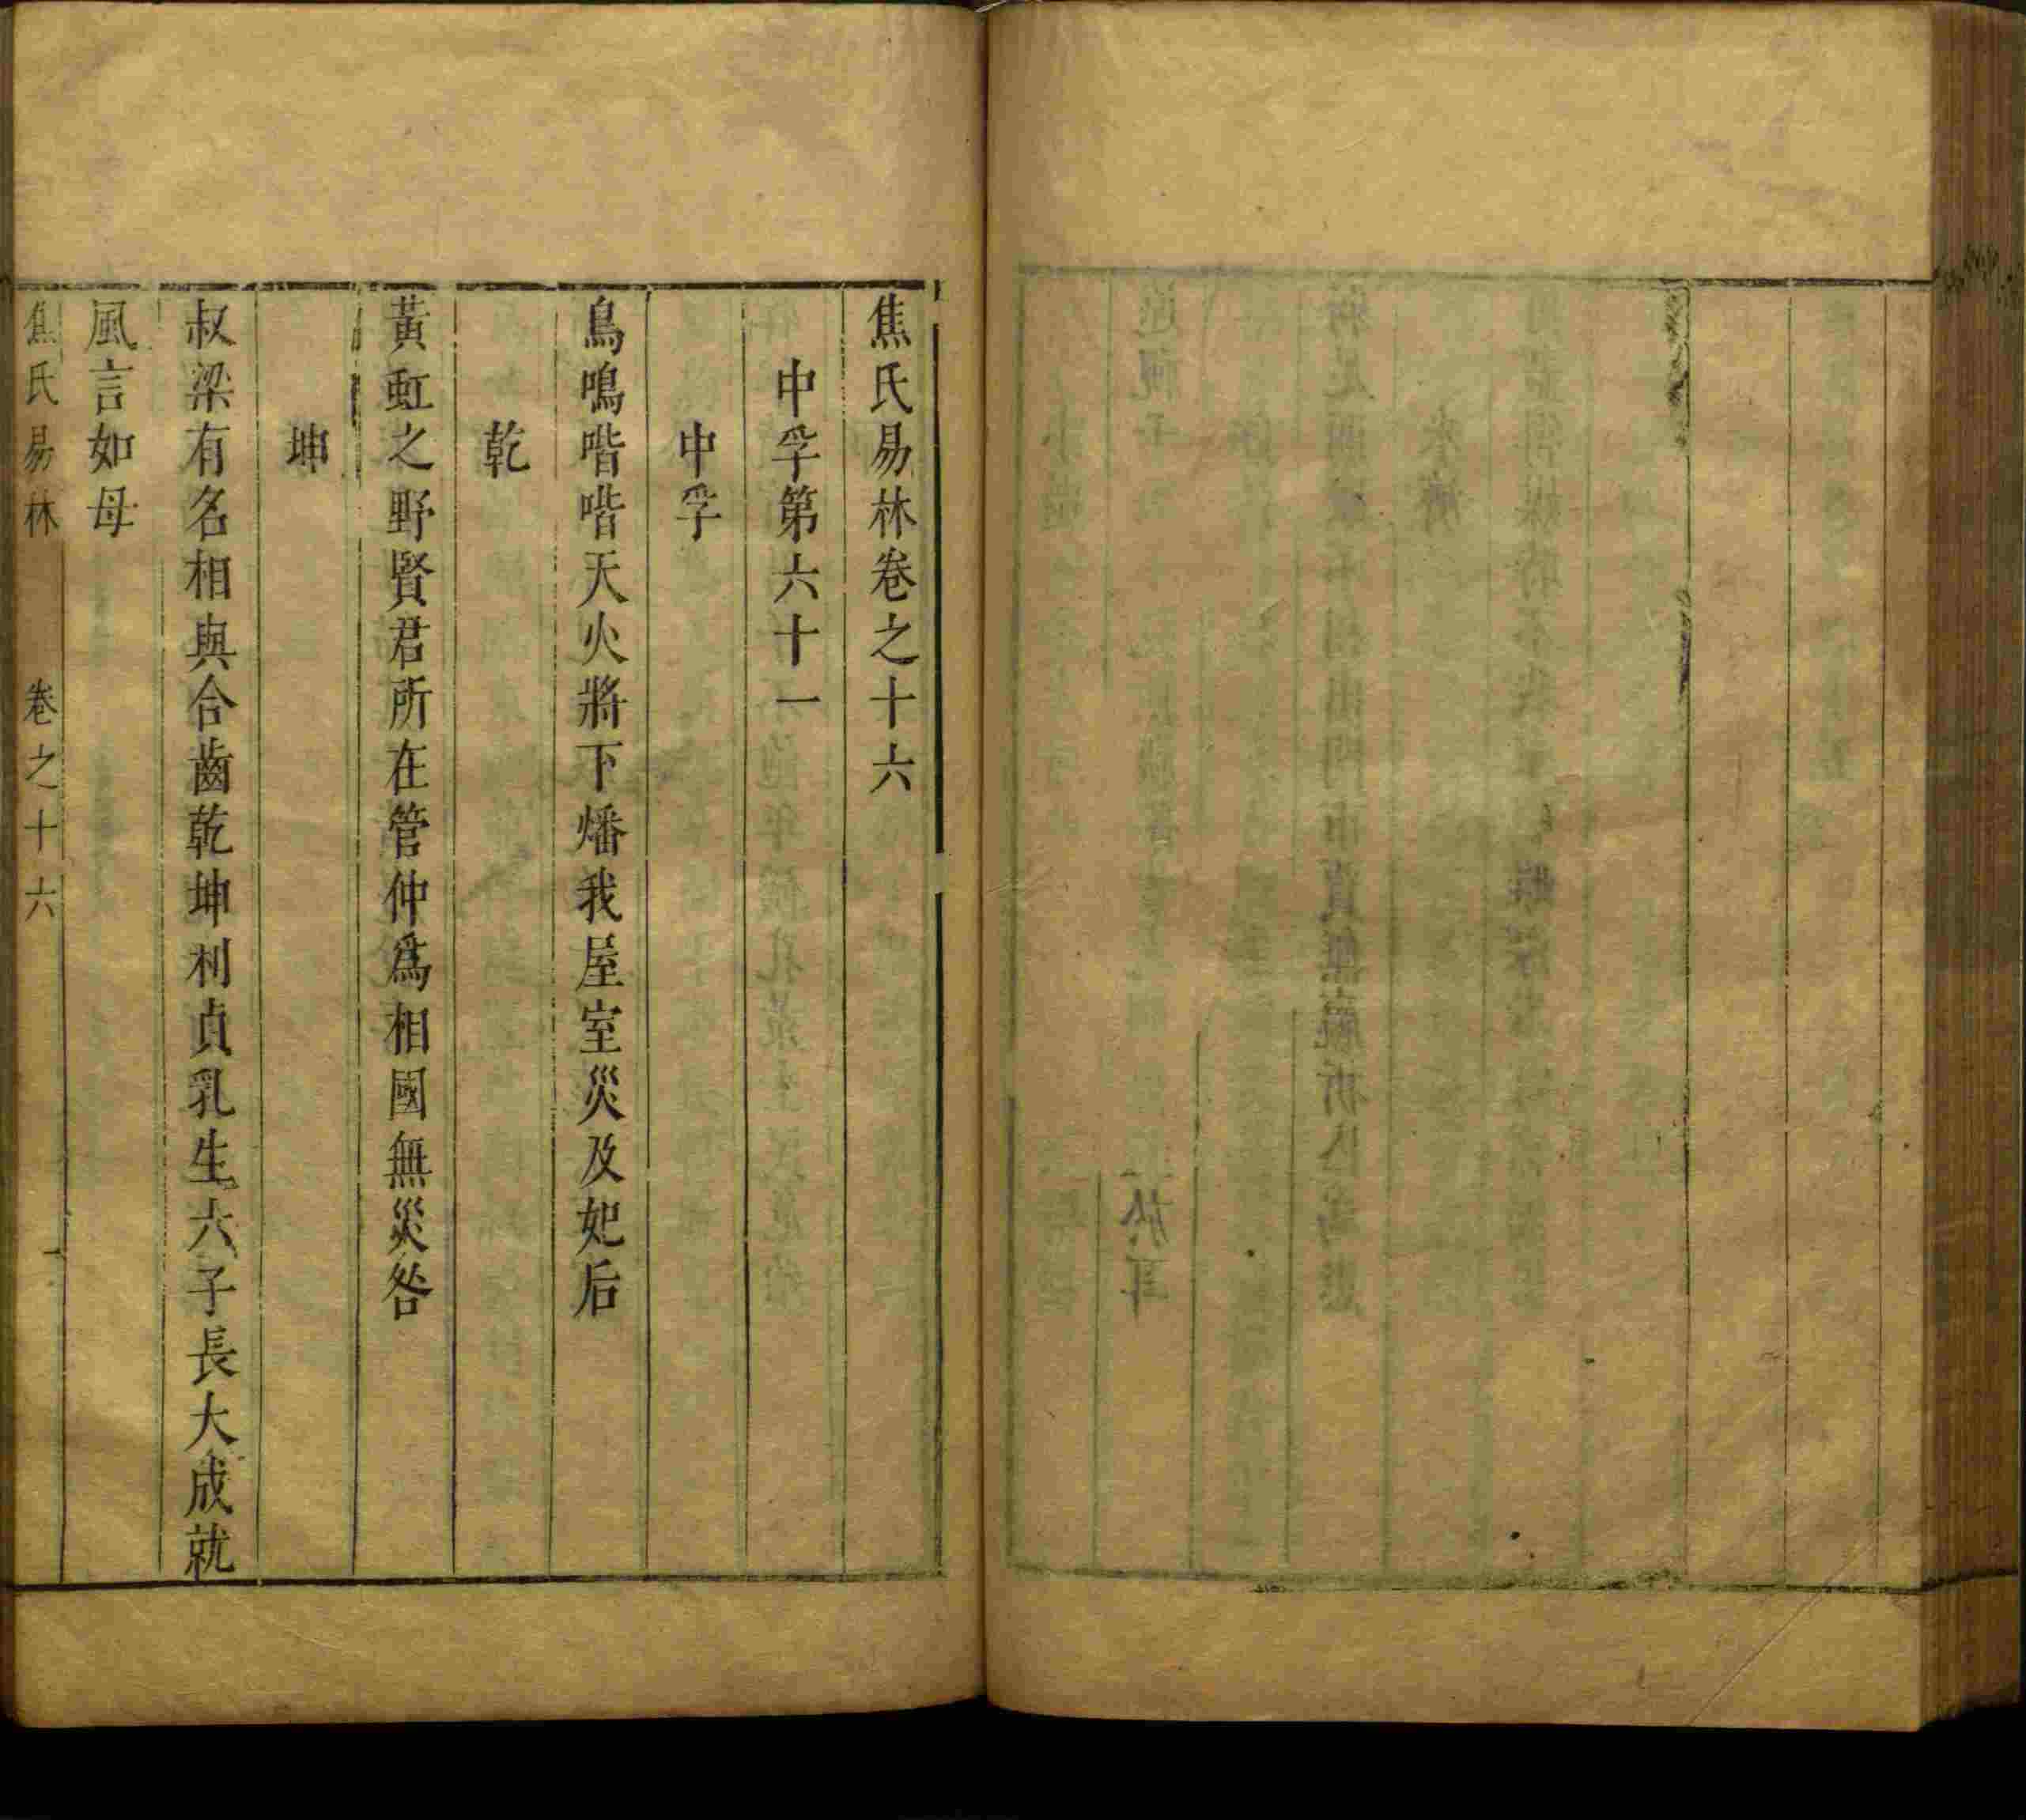 焦氏易林卷之十六
中孚第六十一
中孚
鳥鳴喈喈天火將下燔我屋室災及妃后
乾
黃虹之野賢君所在管仲爲相國無災咎
坤
叔梁有名相與合齒乾坤利貞乳生六子長大成就
風言如母
焦氏易林 卷之十六 一